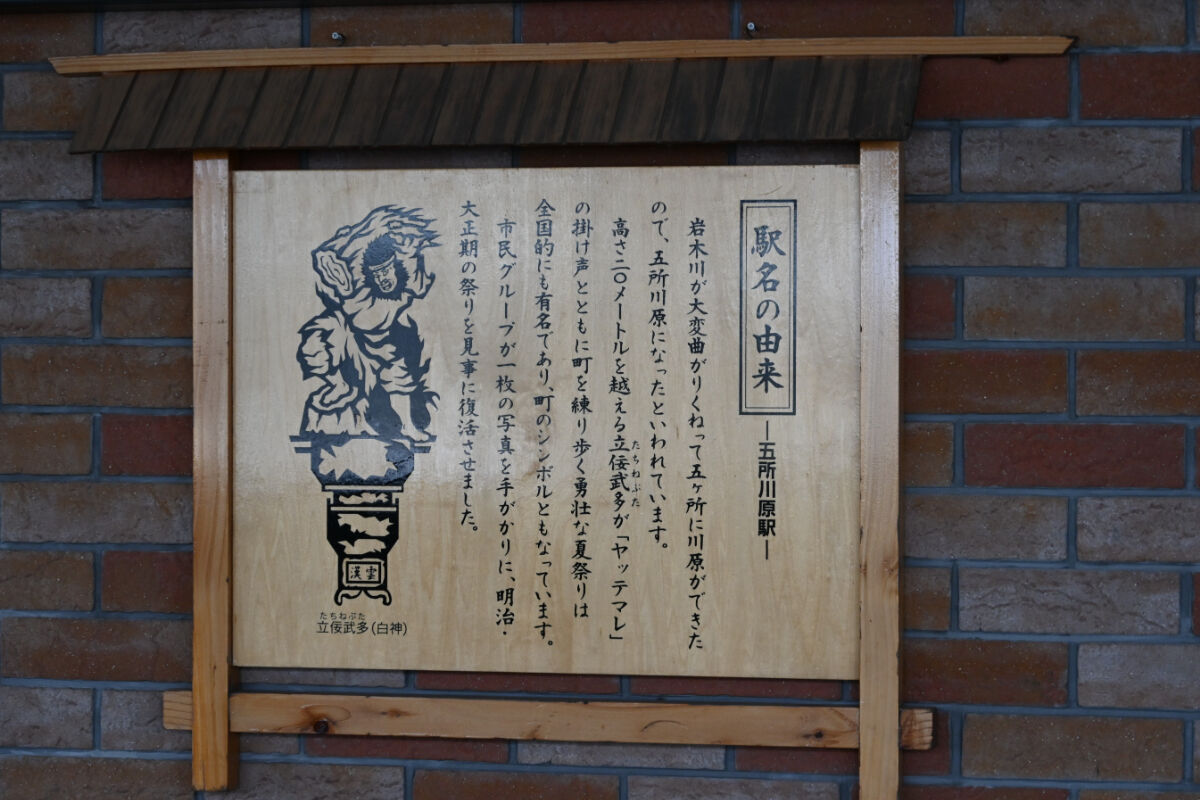 駅名の由来
―五所川原駅―
岩木川が大変曲がりくねって五ヶ所に川原ができた
ので、五所川原になったといわれています。
高さ二〇メートルを越える立佞武多が「ヤッテマレ」
たちねぷた
の掛け声とともに町を練り歩く勇壮な夏祭りは
全国的にも有名であり、町のシンボルともなっています。
市民グループが一枚の写真を手がかりに、明治・
大正期の祭りを見事に復活させました。
雲漢
たちねぷた
立佞武多(白神)